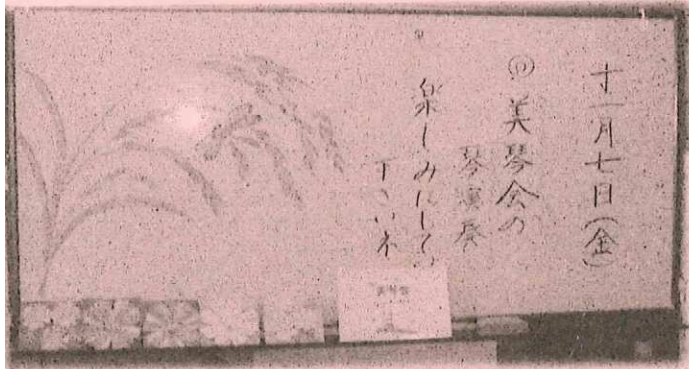 十一月七日(金)
美琴会の
琴演奏
楽しみにして
下さいネ